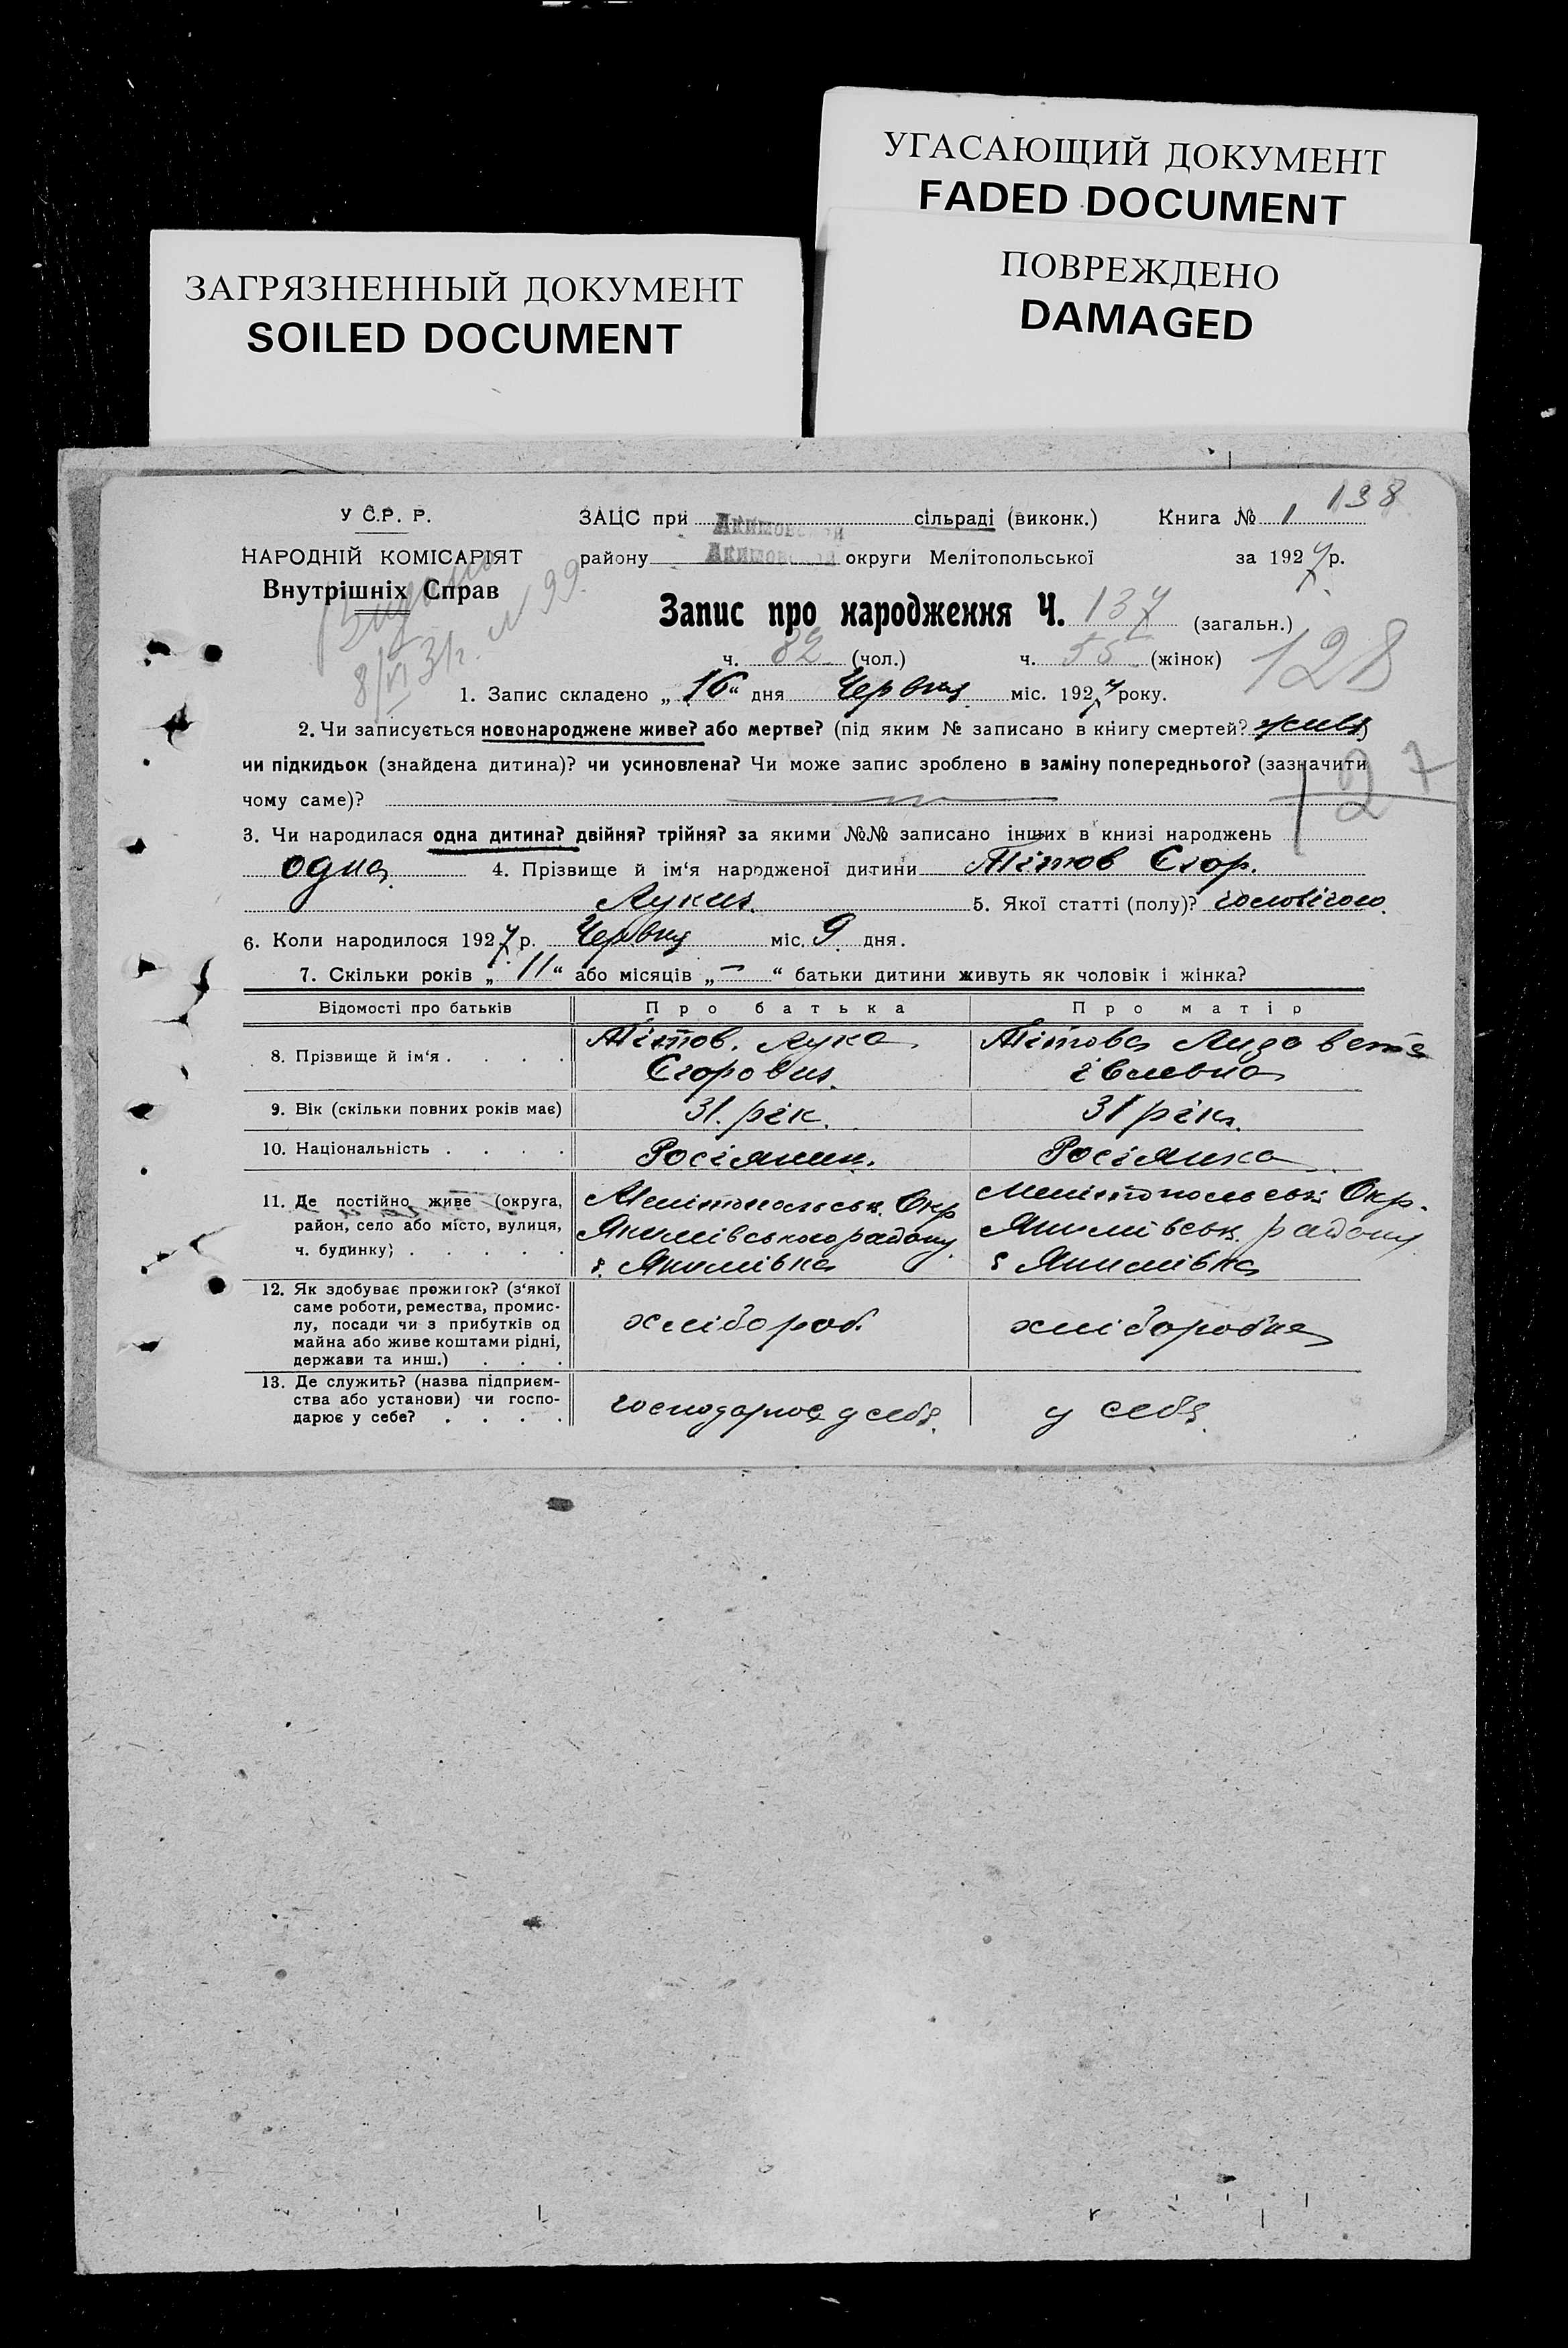 УГАСАЮЩИЙ ДОКУМЕНТ
FADED DOCUMENT
ПОВРЕЖДЕНО
DAMAGED
ЗАГРЯЗНЕННЫЙ ДОКУМЕНТ
SOILED DOCUMENT
138
У С.Р. Р. ЗАЦС при Акимовской сільраді (виконк.) Книга № 1
НАРОДНІЙ КОМІСАРІЯТ району Акимовской округи Мелітопольської за 1927 р.
Внутрішніх Справ
Видано
8/VI 31 г. № 99.
Запис про народження Ч. 137 (загальн.)
ч. 82 (чол.) ч. 55 (жінок) 128
1. Запис складено „ 16 “ дня Червня міс. 1927 року.
2. Чи записується новонароджене живе? або мертве? (під яким № записано в книгу смертей? живе)
чи підкидьок (знайдена дитина)? чи усиновлена? Чи може запис зроблено в заміну попереднього? (зазначити
чому саме)? 127
3. Чи народилася одна дитина? двійня? трійня? за якими №№ записано інших в книзі народжень
одна 4. Прізвище й ім‘я народженої дитини Тітов Єгор.
Лукич. 5. Якої статті (полу)? чоловічого.
6. Коли народилося 1927 р. Червня міс. 9 дня.
7. Скільки років „ 11 “ або місяців „ — “ батьки дитини живуть як чоловік і жінка?
Відомості про батьків Про батька Про матір
8. Прізвище й ім‘я . . . . Тітов. Лука Тітова Лизавета
Єгорович.
9. Вік (скільки повних років має) 31. рік. 31 рік.
10. Національність . . . . Росіянин. Росіянка
11. Де постійно живе (округа, Мелітопольськ. Окр Мелітопольськ Окр.
район, село або місто, вулиця, Якимівського району Якимівськ. району
ч. будинку) . . . . . с. Якимівка с Якимівка
12. Як здобуває прожиток? (з‘якої
саме роботи, ремества, промис-
лу, посади чи з прибутків од хлібороб. хліборобка
майна або живе коштами рідні,
держави та инш.) . . .
13. Де служить? (назва підприєм-
ства або установи) чи госпо- господарює у себе. у себе.
дарює у себе? . . . .